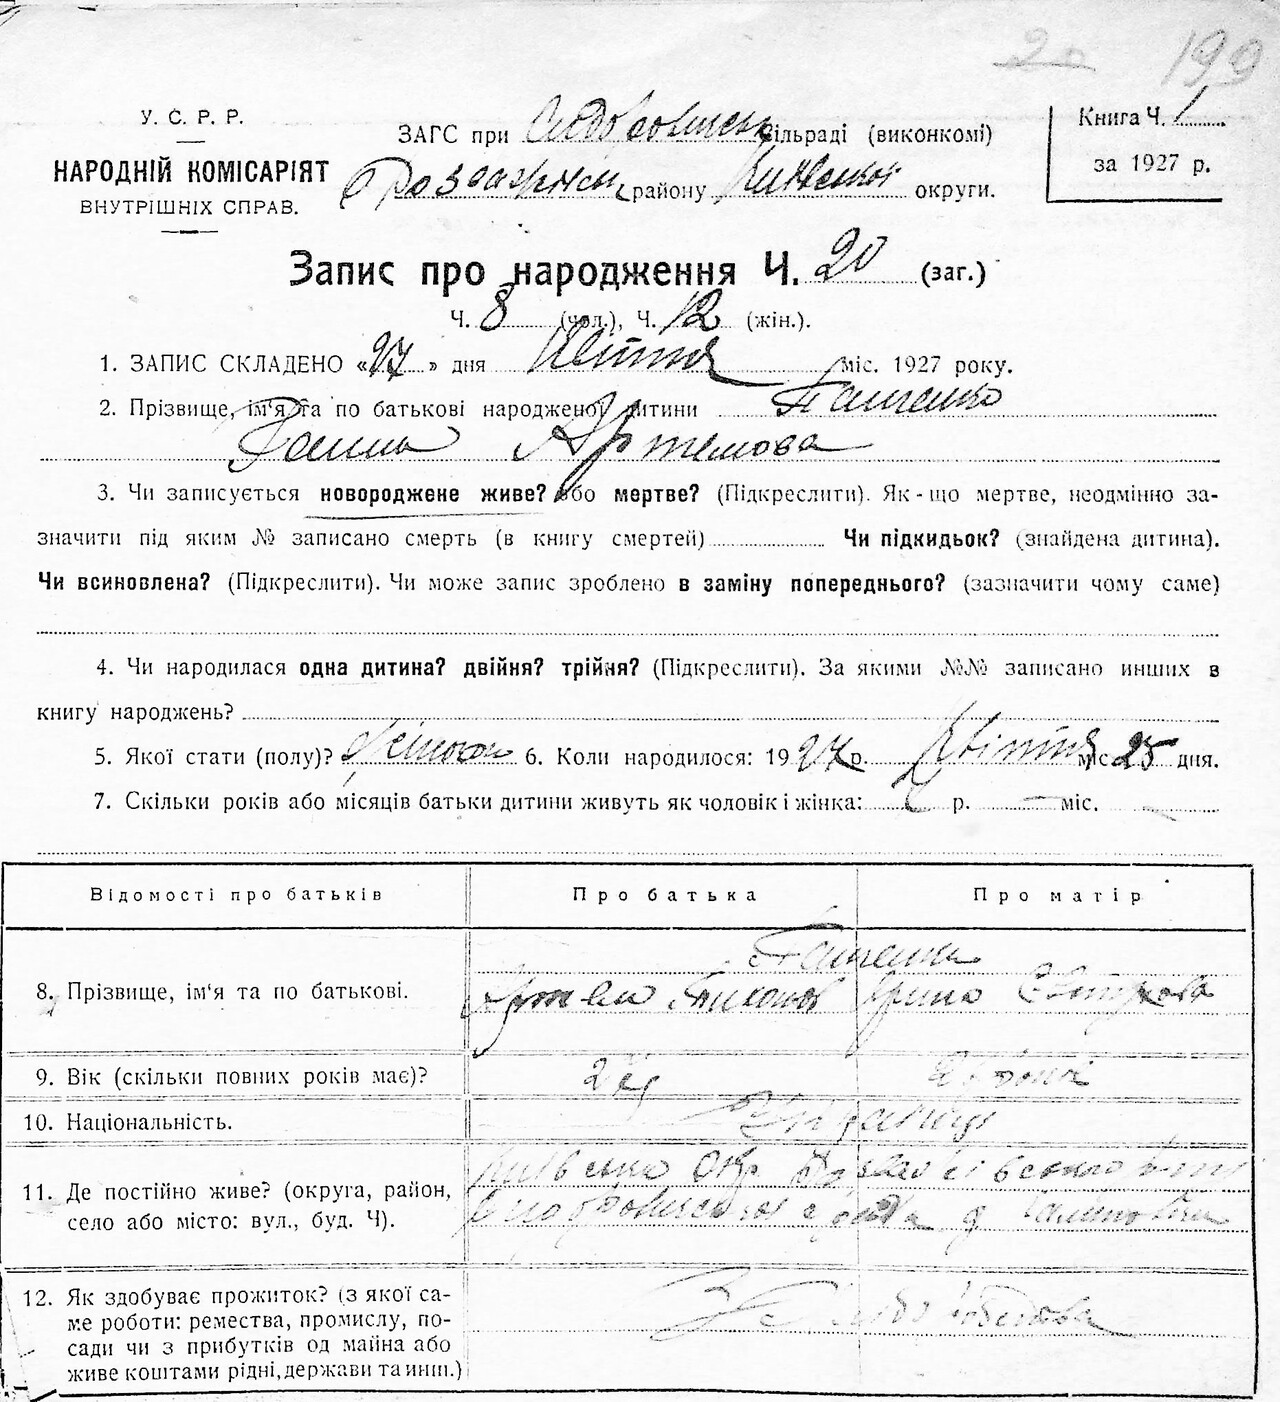 20 199
У. С. Р. Р.
НАРОДНІЙ КОМІСАРІЯТ
ВНУТРІШНІХ СПРАВ.
ЗАГС при сільраді (виконкомі)
району Київської округи.
Книга Ч. 1
за 1927 р.
Запис про народження Ч. 20 (заг.)
Ч. 8 (чол.), Ч. 12 (жін.).
1. ЗАПИС СКЛАДЕНО «27» дня Квітня міс. 1927 року.
2. Прізвище, ім'я та по батькові народженої дитини
Ганна Артемова
3. Чи записується новороджене живе? або мертве? (Підкреслити). Як-що мертве, неодмінно за-
значити під яким № записано смерть (в книгу смертей) Чи підкидьок? (знайдена дитина).
Чи всиновлена? (Підкреслити). Чи може запис зроблено в заміну попереднього? (зазначити чому саме)
4. Чи народилася одна дитина? двійня? трійня? (Підкреслити). За якими №№ записано инших в
книгу народжень?
5. Якої стати (полу)? жіночої 6. Коли народилося: 1927 р. Квітня міс. 25 дня.
7. Скільки років або місяців батьки дитини живуть як чоловік і жінка: р. — міс.
Відомості про батьків Про батька Про матір
8. Прізвище, ім'я та по батькові.
Артем Тихонов
9. Вік (скільки повних років має)?
10. Національність. Українці
11. Де постійно живе? (округа, район,
село або місто: вул., буд. Ч).
Київська Окр.
12. Як здобуває прожиток? (з якої са-
ме роботи: ремества, промислу, по-
сади чи з прибутків од майна або
живе коштами рідні, держави та инш.)